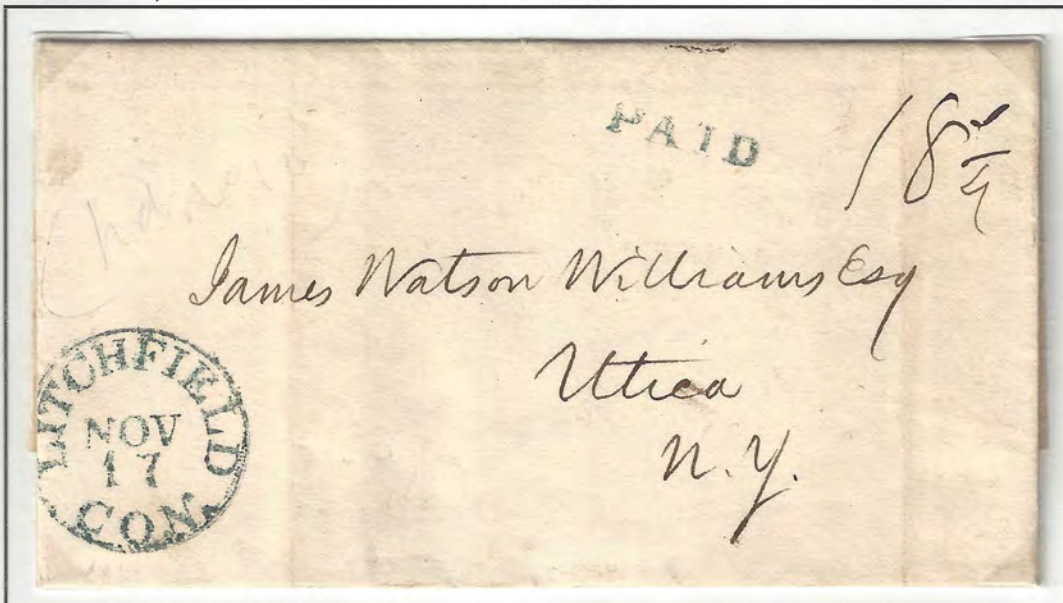 PAID
18 3/4
James Watson Williams Esq
Utica
N.Y.
LITCHFIELD
NOV
17
CON.